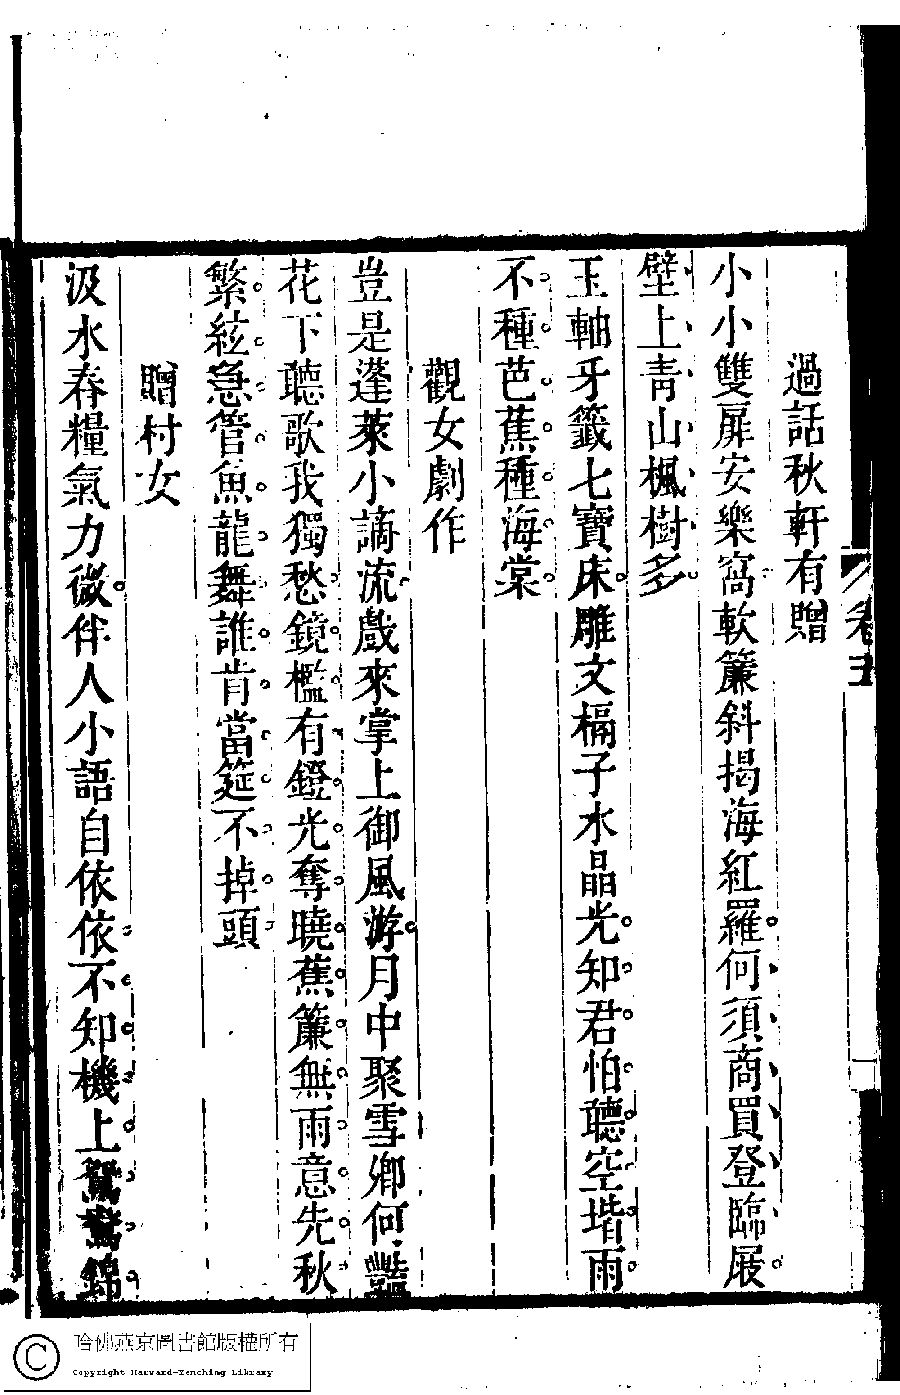 過話秋軒有贈
小小雙扉安樂窩軟簾斜揭海紅羅何須商買登臨屐
壁上青山楓樹多
玉軸牙籤七寶床雕文槅子水晶光知君怕聽空堦雨
不種芭蕉種海棠
觀女劇作
豈是蓬萊小謫流戲來掌上御風游月中聚雪鄉何豔
花下聽歌我獨愁鏡檻有鐙光奪曉蕉簾無雨意先秋
繁絃急管魚龍舞誰肯當筵不掉頭
贈村女
汲水舂糧氣力微伴人小語自依依不知機上鴛鴦錦
卷五
哈佛燕京圖書館版權所有
Copyright Harvard-Yenching Library